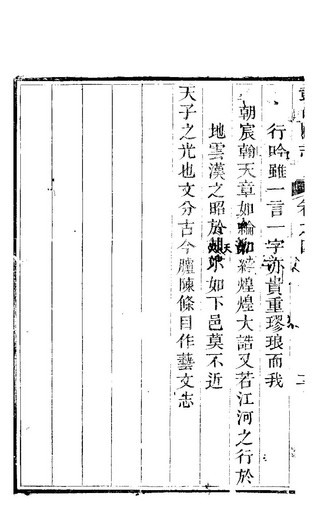 行吟雖一言一字亦貴重璆琅而我
朝宸翰天章如綸如綍煌煌大誥又若江河之行於
地雲漢之昭於天
如下邑莫不近
天子之光也文分古今臚陳條目作藝文志